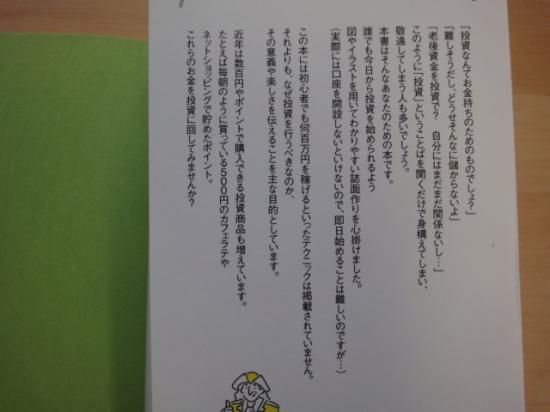 「投資なんてお金持ちのためのものでしょ？」
「難しそうだし、どうせそんなに儲からないよ」
「老後資金を投資で？　自分にはまだまだ関係ないし…」
このように「投資」ということばを聞くだけで身構えてしまい、
敬遠してしまう人も多いでしょう。
本書はそんなあなたのための本です。
誰でも今日から投資を始められるよう
図やイラストを用いてわかりやすい誌面作りを心掛けました。
（実際には口座を開設しないといけないので、即日始めることは難しいのですが…）
この本には初心者でも何百万円を稼げるといったテクニックは掲載されていません。
それよりも、なぜ投資を行うべきなのか、
その意義や楽しさを伝えることを主な目的としています。
近年は数百円やポイントで購入できる投資商品も増えています。
たとえば毎朝のように買っている500円のカフェラテや
ネットショッピングで貯めたポイント。
これらのお金を投資に回してみませんか？